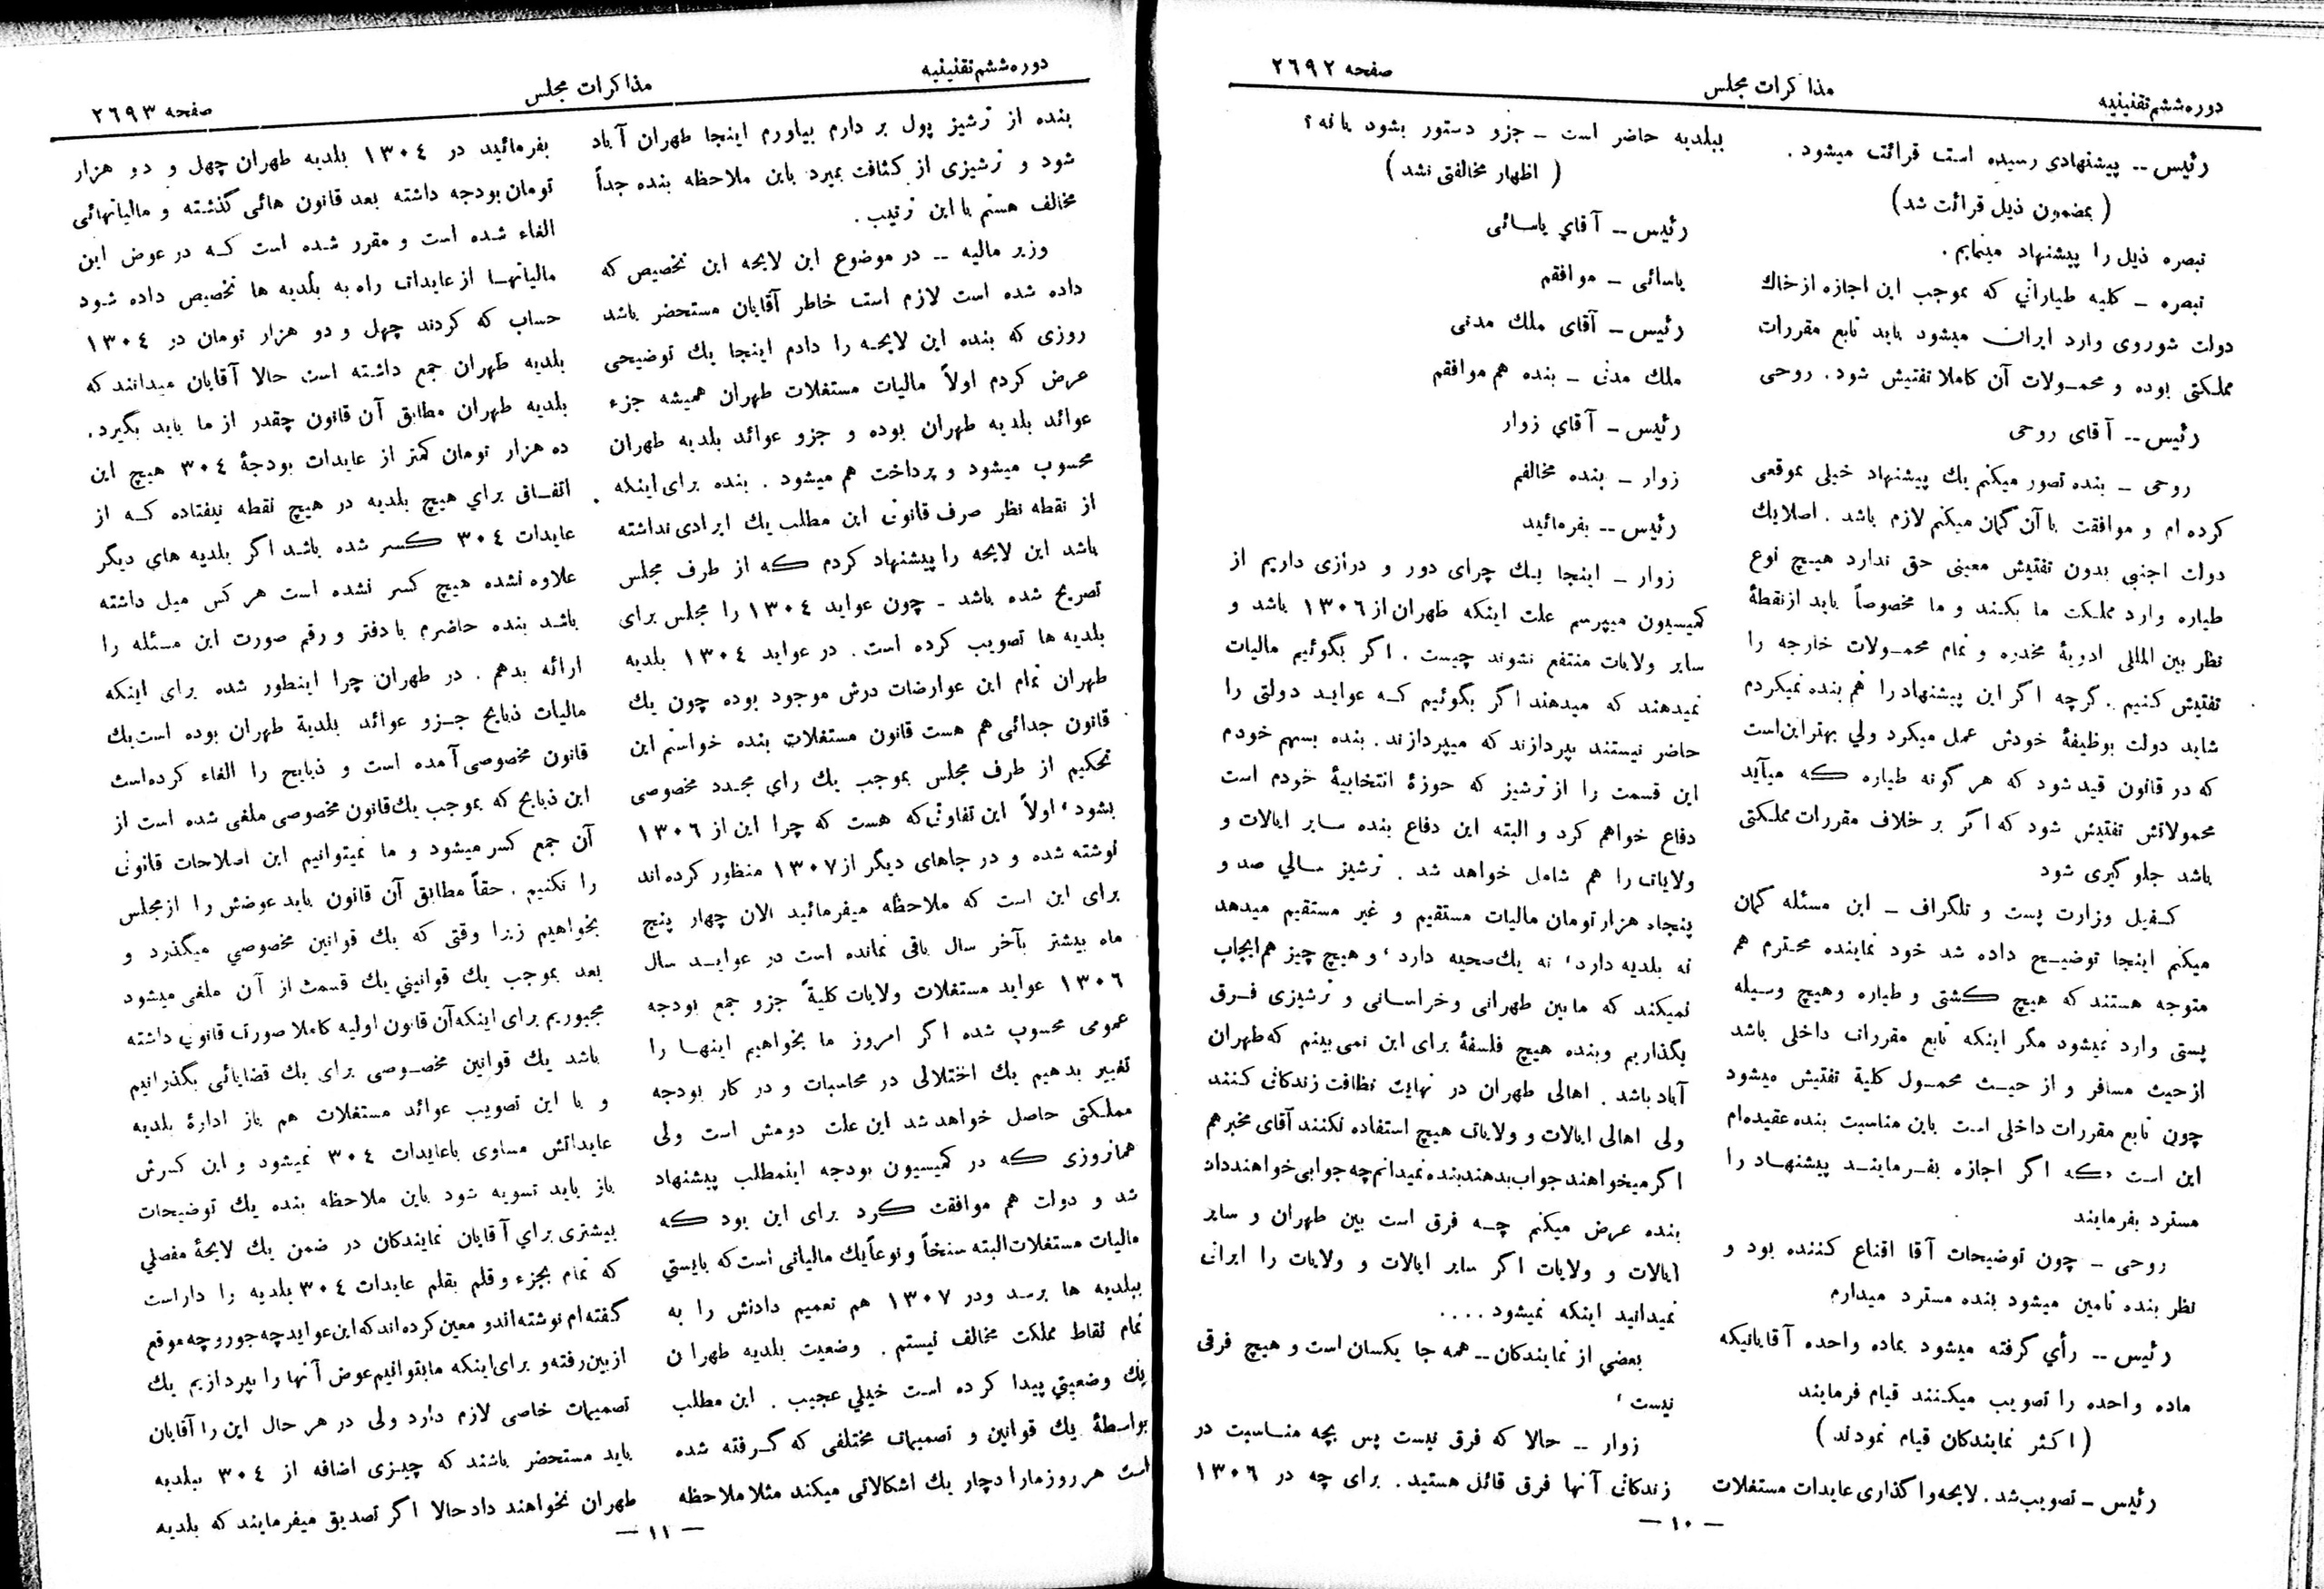 دوره ششم تقنینیه
مذاکرات مجلس
صفحه ٢٦٩٢
رئیس ــ پیشنهادی رسیده است قرائت میشود .
( بمضمون ذیل قرائت شد )
تبصره ذیل را پیشنهاد مینمایم .
تبصره ــ کلیه طیاراتی که بموجب این اجازه از خاك
دولت شوروی وارد ایران میشود باید تابع مقررات
مملکتی بوده و محمولات آن کاملا تفتیش شود . روحی
رئیس ــ آقای روحی
روحی ــ بنده تصور میکنم یك پیشنهاد خیلی بموقعی
کرده ام و موافقت با آن گمان میکنم لازم باشد . اصلا یك
دولت اجنبی بدون تفتیش معینی حق ندارد هیچ نوع
طیاره وارد مملکت ما بکند و ما مخصوصاً باید از نقطهٔ
نظر بین المللی ادویهٔ مخدره و تمام محمولات خارجه را
تفتیش کنیم . گرچه اگر این پیشنهاد را هم بنده نمیکردم
شاید دولت بوظیفهٔ خودش عمل میکرد ولي بهتر این است
که در قانون قید شود که هر گونه طیاره که میآید
محمولاتش تفتیش شود که اگر بر خلاف مقررات مملکتی
باشد جلوگیری شود
کفیل وزارت پست و تلگراف ــ این مسئله گمان
میکنم اینجا توضیح داده شد خود نماینده محترم هم
متوجه هستند که هیچ کشتی و طیاره و هیچ وسیله
پستی وارد نمیشود مگر اینکه تابع مقررات داخلی باشد
از حیث مسافر و از حیث محمول کلیة تفتیش میشود
چون تابع مقررات داخلی است باین مناسبت بنده عقیده‌ام
این است که اگر اجازه بفرمایند پیشنهاد را
مسترد بفرمایند
روحی ــ چون توضیحات آقا اقناع کننده بود و
نظر بنده تامین میشود بنده مسترد میدارم
رئیس ــ رأي گرفته میشود بماده واحده آقایانیکه
ماده واحده را تصویب میکنند قیام فرمایند
( اکثر نمایندکان قیام نمودند )
رئیس ــ تصویب شد . لایحه واگذاری عایدات مستغلات
ببلدیه حاضر است ــ جزو دستور بشود یا نه ؟
( اظهار مخالفتی نشد )
رئیس ــ آقاي یاسائی
یاسائی ــ موافقم
رئیس ــ آقای ملك مدنی
ملك مدنی ــ بنده هم موافقم
رئیس ــ آقاي زوار
زوار ــ بنده مخالفم
رئیس ــ بفرمائید
زوار ــ اینجا یك چرای دور و درازی داریم از
کمیسیون میپرسم علت اینکه طهران از ١٣٠٦ باشد و
سایر ولایات منتفع نشوند چیست . اگر بگوئیم مالیات
نمیدهند که میدهند اگر بگوئیم که عواید دولتی را
حاضر نیستند بپردازند که میپردازند . بنده بسهم خودم
این قسمت را از ترشیز که حوزهٔ انتخابیهٔ خودم است
دفاع خواهم کرد و البته این دفاع بنده سایر ایالات و
ولایات را هم شامل خواهد شد . ترشیز سالي صد و
پنجاه هزار تومان مالیات مستقیم و غیر مستقیم میدهد
نه بلدیه دارد ، نه یك صحیه دارد ، و هیچ چیز هم ایجاب
نمیکند که مابین طهرانی وخراسانی و ترشیزی فرق
بگذاریم وبنده هیچ فلسفهٔ برای این نمی بینم که طهران
آباد باشد . اهالی طهران در نهایت نظافت زندکانی کنند
ولی اهالی ایالات و ولایات هیچ استفاده نکنند آقای مخبر هم
اکر میخواهند جواب بدهند بنده نمیدانم چه جوابی خواهند داد
بنده عرض میکنم چه فرق است بین طهران و سایر
ایالات و ولایات اگر سایر ایالات و ولایات را ایرانی
نمیدانید اینکه نمیشود . . . .
بعضي از نمایندکان ــ همه جا یکسان است و هیچ فرقی
نیست ،
زوار ــ حالا که فرق نیست پس بچه مناسبت در
زندکانی آنها فرق قائل هستید . برای چه در ١٣٠٦
ــ ١٠ ــ
دوره ششم تقنینیه
مذاکرات مجلس
صفحه ٢٦٩٣
بنده از ترشیز پول بر دارم بیاورم اینجا طهران آباد
شود و ترشیزی از کثافت بمیرد باین ملاحظه بنده جداً
مخالف هستم با این ترتیب .
وزیر مالیه ــ در موضوع این لایحه این تخصیص که
داده شده است لازم است خاطر آقایان مستحضر باشد
روزی که بنده این لایحه را دادم اینجا یك توضیحی
عرض کردم اولاً مالیات مستغلات طهران همیشه جزء
عوائد بلدیه طهران بوده و جزو عوائد بلدیه طهران
محسوب میشود و پرداخت هم میشود . بنده برای اینکه
از نقطه نظر صرف قانونی این مطلب یك ایرادی نداشته
باشد این لایحه را پیشنهاد کردم که از طرف مجلس
تصریح شده باشد ــ چون عواید ١٣٠٤ را مجلس برای
بلدیه ها تصویب کرده است . در عواید ١٣٠٤ بلدیه
طهران تمام این عوارضات درش موجود بوده چون یك
قانون جدائی هم هست قانون مستغلات بنده خواستم این
تحکیم از طرف مجلس بموجب یك راي مجدد مخصوصی
بشود ، اولاً این تفاوتی که هست که چرا این از ١٣٠٦
نوشته شده و در جاهای دیگر از ١٣٠٧ منظور کرده اند
برای این است که ملاحظه میفرمائید الان چهار پنج
ماه بیشتر بآخر سال باقی نمانده است در عواید سال
١٣٠٦ عواید مستغلات ولایات کلیةً جزو جمع بودجه
عمومی محسوب شده اگر امروز ما بخواهیم اینها را
تغییر بدهیم یك اختلالی در محاسبات و در کار بودجه
مملکتی حاصل خواهد شد این علت دومش است ولی
همانروزی که در کمیسیون بودجه اینمطلب پیشنهاد
شد و دولت هم موافقت کرد برای این بود که
مالیات مستغلات البته سنخاً و نوعاً یك مالیاتی است که بایستي
ببلدیه ها برسد ودر ١٣٠٧ هم تعمیم دادنش را به
تمام نقاط مملکت مخالف نیستم . وضعیت بلدیه طهران
یك وضعیتي پیدا کرده است خیلي عجیب . این مطلب
بواسطهٔ یك قوانین و تصمیمات مختلفی که گرفته شده
است هر روز ما را دچار یك اشکالاتی میکند مثلا ملاحظه
بفرمائید در ١٣٠٤ بلدیه طهران چهل و دو هزار
تومان بودجه داشته بعد قانون هائی گذشته و مالیاتهائی
الغاء شده است و مقرر شده است که در عوض این
مالیاتها از عایدات راه به بلدیه ها تخصیص داده شود
حساب که کردند چهل و دو هزار تومان در ١٣٠٤
بلدیه طهران جمع داشته است حالا آقایان میدانند که
بلدیه طهران مطابق آن قانون چقدر از ما باید بگیرد .
ده هزار تومان کمتر از عایدات بودجهٔ ٣٠٤ هیچ این
اتفاق براي هیچ بلدیه در هیچ نقطه نیفتاده که از
عایدات ٣٠٤ کسر شده باشد اگر بلدیه هاي دیگر
علاوه نشده هیچ کسر نشده است هر کس میل داشته
باشد بنده حاضرم با دفتر و رقم صورت این مسئله را
ارائه بدهم . در طهران چرا اینطور شده برای اینکه
مالیات ذبایح جزو عوائد بلدیة طهران بوده است یك
قانون مخصوصی آمده است و ذبایح را الغاء کرده است
این ذبایح که بموجب یك قانون مخصوصی ملغی شده است از
آن جمع کسر میشود و ما نمیتوانیم این اصلاحات قانونی
را نکنیم . حقاً مطابق آن قانون باید عوضش را از مجلس
بخواهیم زیرا وقتی که یك قوانین مخصوصي میگذرد و
بعد بموجب یك قوانیني یك قسمت از آن ملغی میشود
مجبوریم برای اینکه آن قانون اولیه کاملا صورت قانوني داشته
باشد یك قوانین مخصوصی برای یك قضایائی بگذرانیم
و با این تصویب عوائد مستغلات هم باز ادارهٔ بلدیه
عایداتش مساوی با عایدات ٣٠٤ نمیشود و این کسرش
باز باید تسویه شود باین ملاحظه بنده یك توضیحات
بیشتری براي آقایان نمایندکان در ضمن یك لایحهٔ مفصلي
که تمام بجزء و قلم بقلم عایدات ٣٠٤ بلدیه را داراست
گفته ام نوشته اند و معین کرده اند که این عواید چه جور و چه موقع
از بین رفته و برای اینکه ما بتوانیم عوض آنها را بپردازیم یك
تصمیمات خاصی لازم دارد ولی در هر حال این را آقایان
باید مستحضر باشند که چیزی اضافه از ٣٠٤ ببلدیه
طهران نخواهند داد حالا اگر تصدیق میفرمایند که بلدیه
ــ ١١ ــ